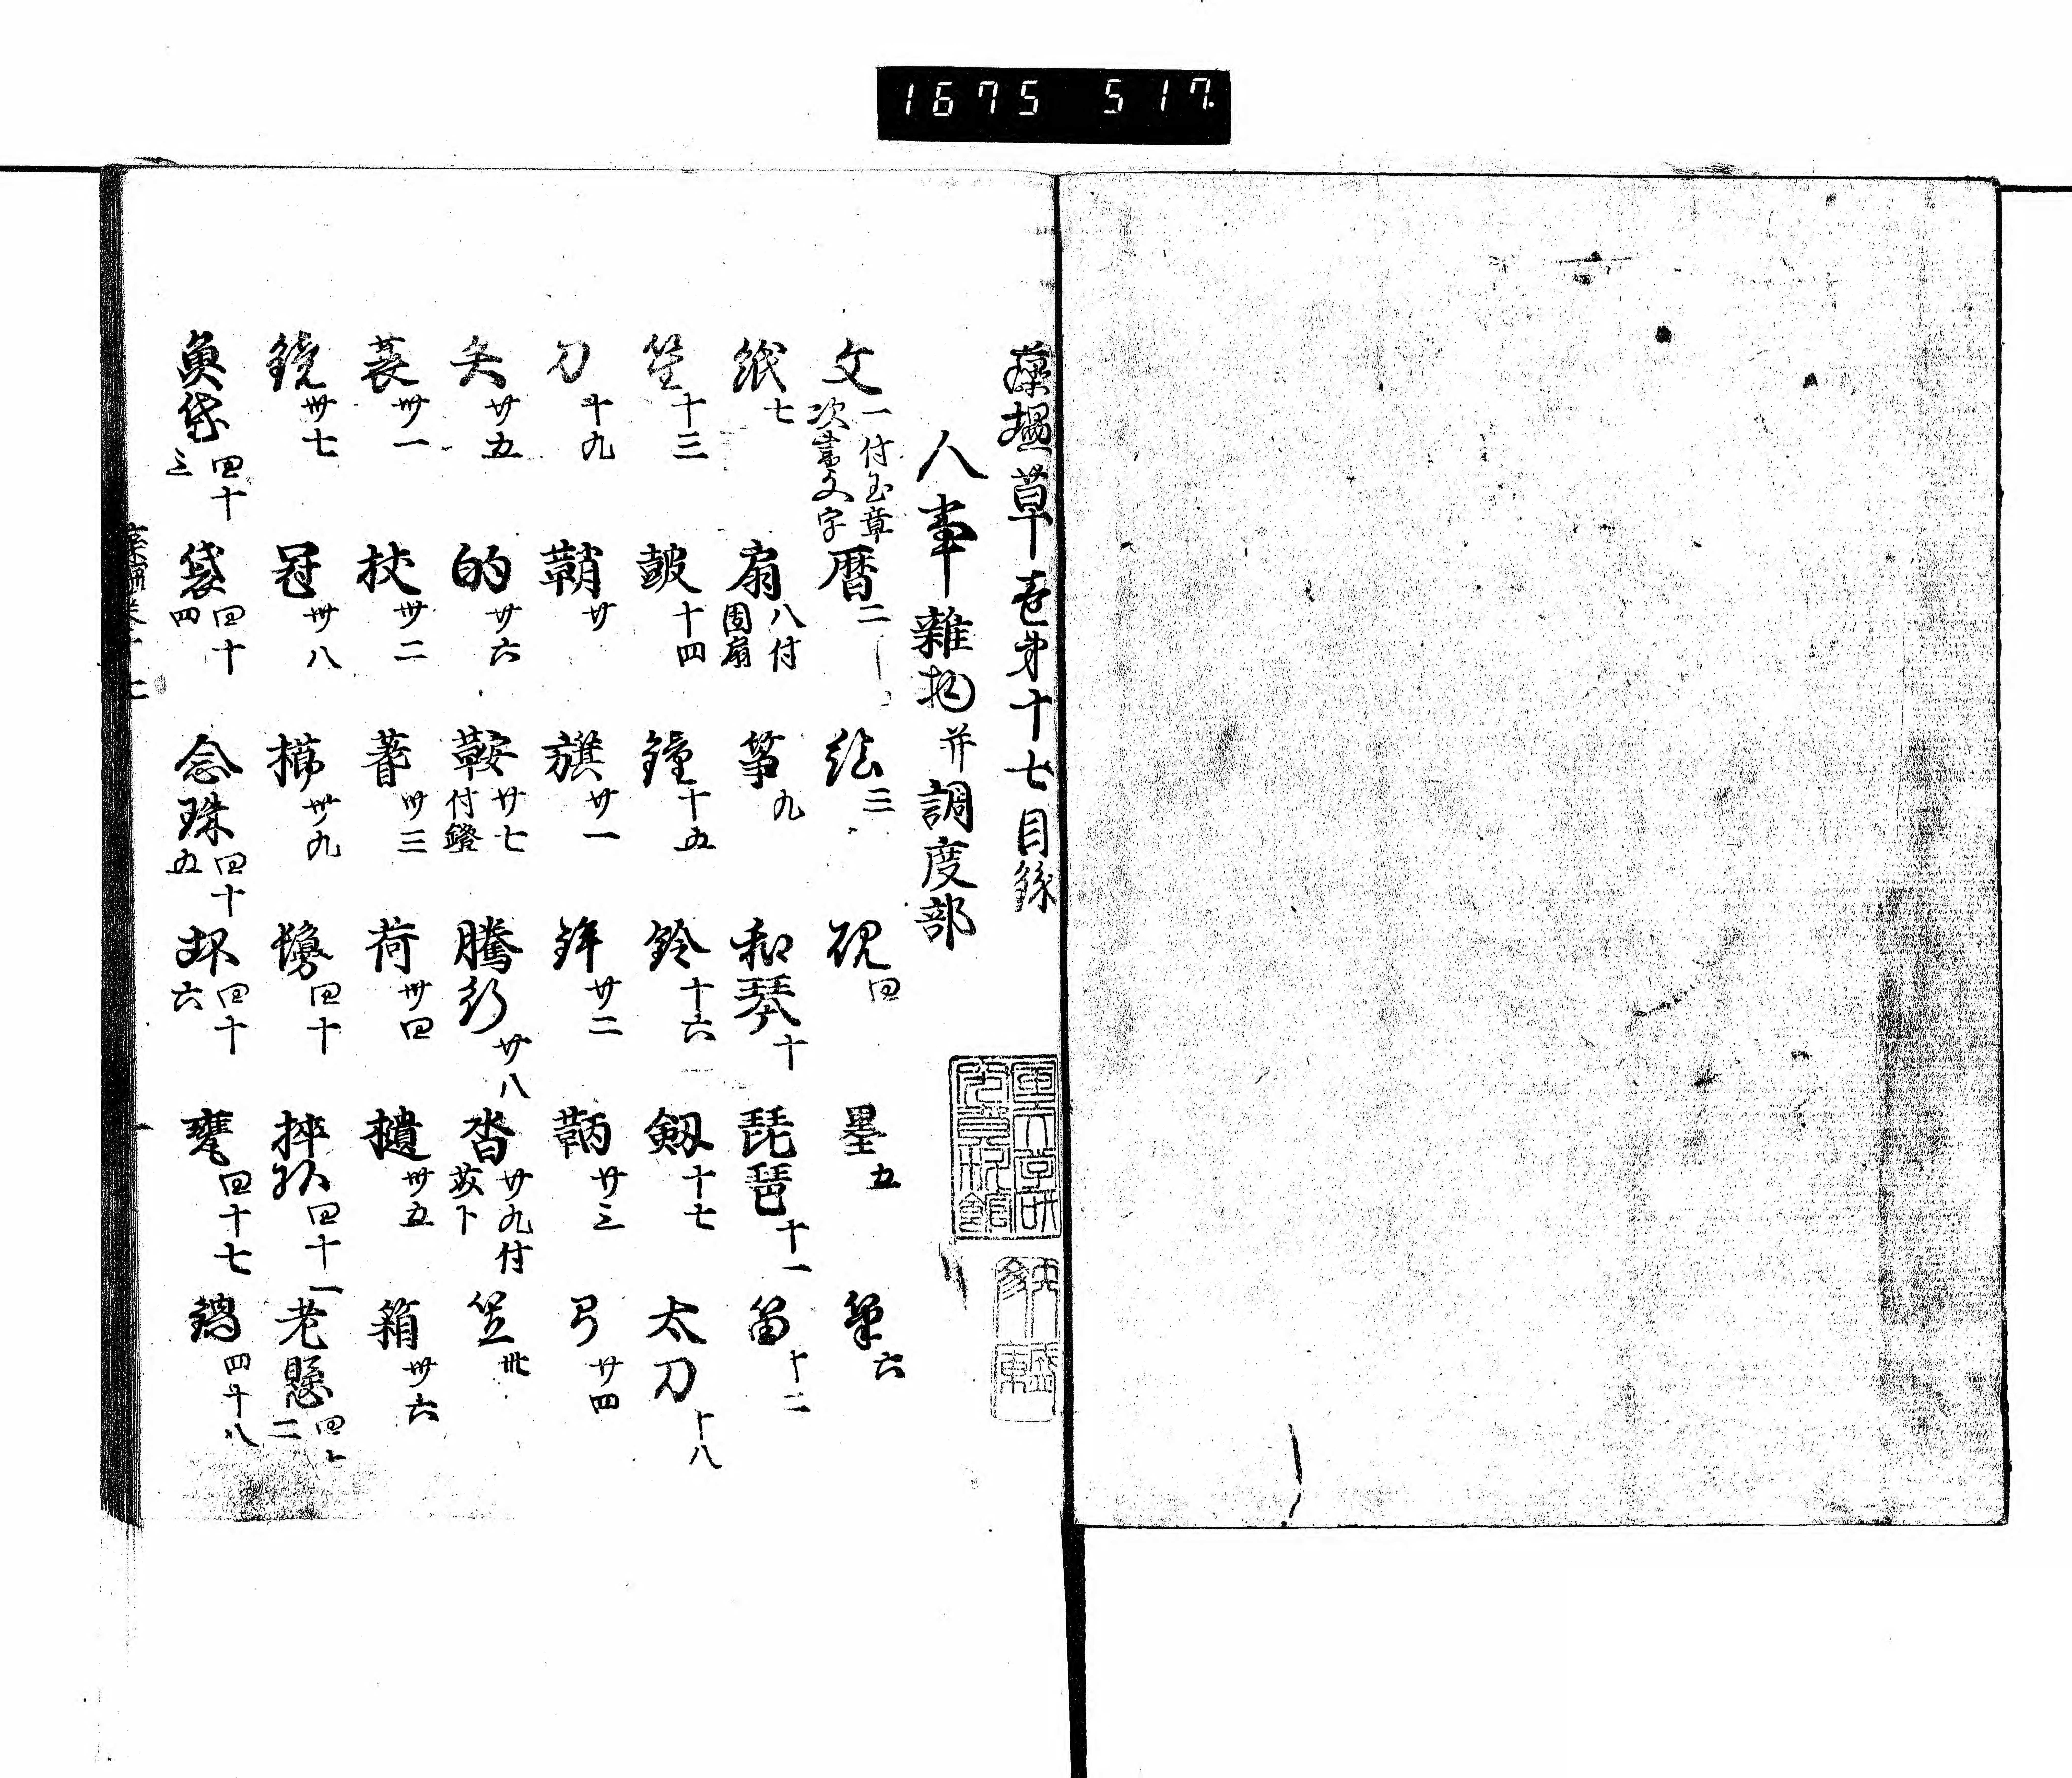 1675 517
藻塩草巻第十七目録
人事雑物并調度部
文 一付玉章次書文字 暦 二 絵 三 硯 四 墨 五 筆 六
紙 七 扇 八付団扇 筝 九 和琴 十 琵琶 十一 笛 十二
笙 十三 鼓 十四 鐘 十五 鈴 十六 剱 十七 太刀 十八
刀 十九 鞘 廿 旗 廿一 鉾 廿二 鞆 廿三 弓 廿四
矢 廿五 的 廿六 鞍 廿七付鐙 廿八 沓 廿九付 笠 卅
蓑 卅一 杖 卅二 卅三 荷 卅四 卅五 箱 卅六
鏡 卅七 冠 卅八 櫛 卅九 鬘 四十 四十一 老懸 四十二
魚袋 四十三 袋 四十四 念珠 四十五 坏 四十六 甕 四十七 鍋 四十八